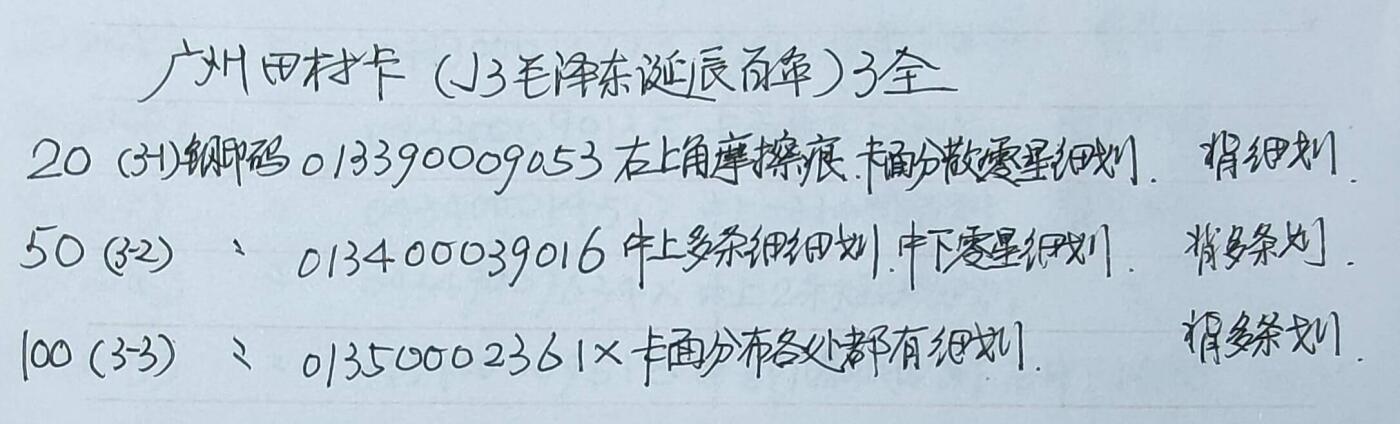 广州田村卡（J3毛泽东诞辰百年）3全
20 (3-1)钢印码 013390009053 右上角摩擦痕.卡面分散零星细划. 背细划.
50 (3-2) 〃 013400039016 中上多条细细划.中下零星细划. 背多条划.
100 (3-3) 〃 013500002361× 卡面分布各处都有细划. 背多条划.